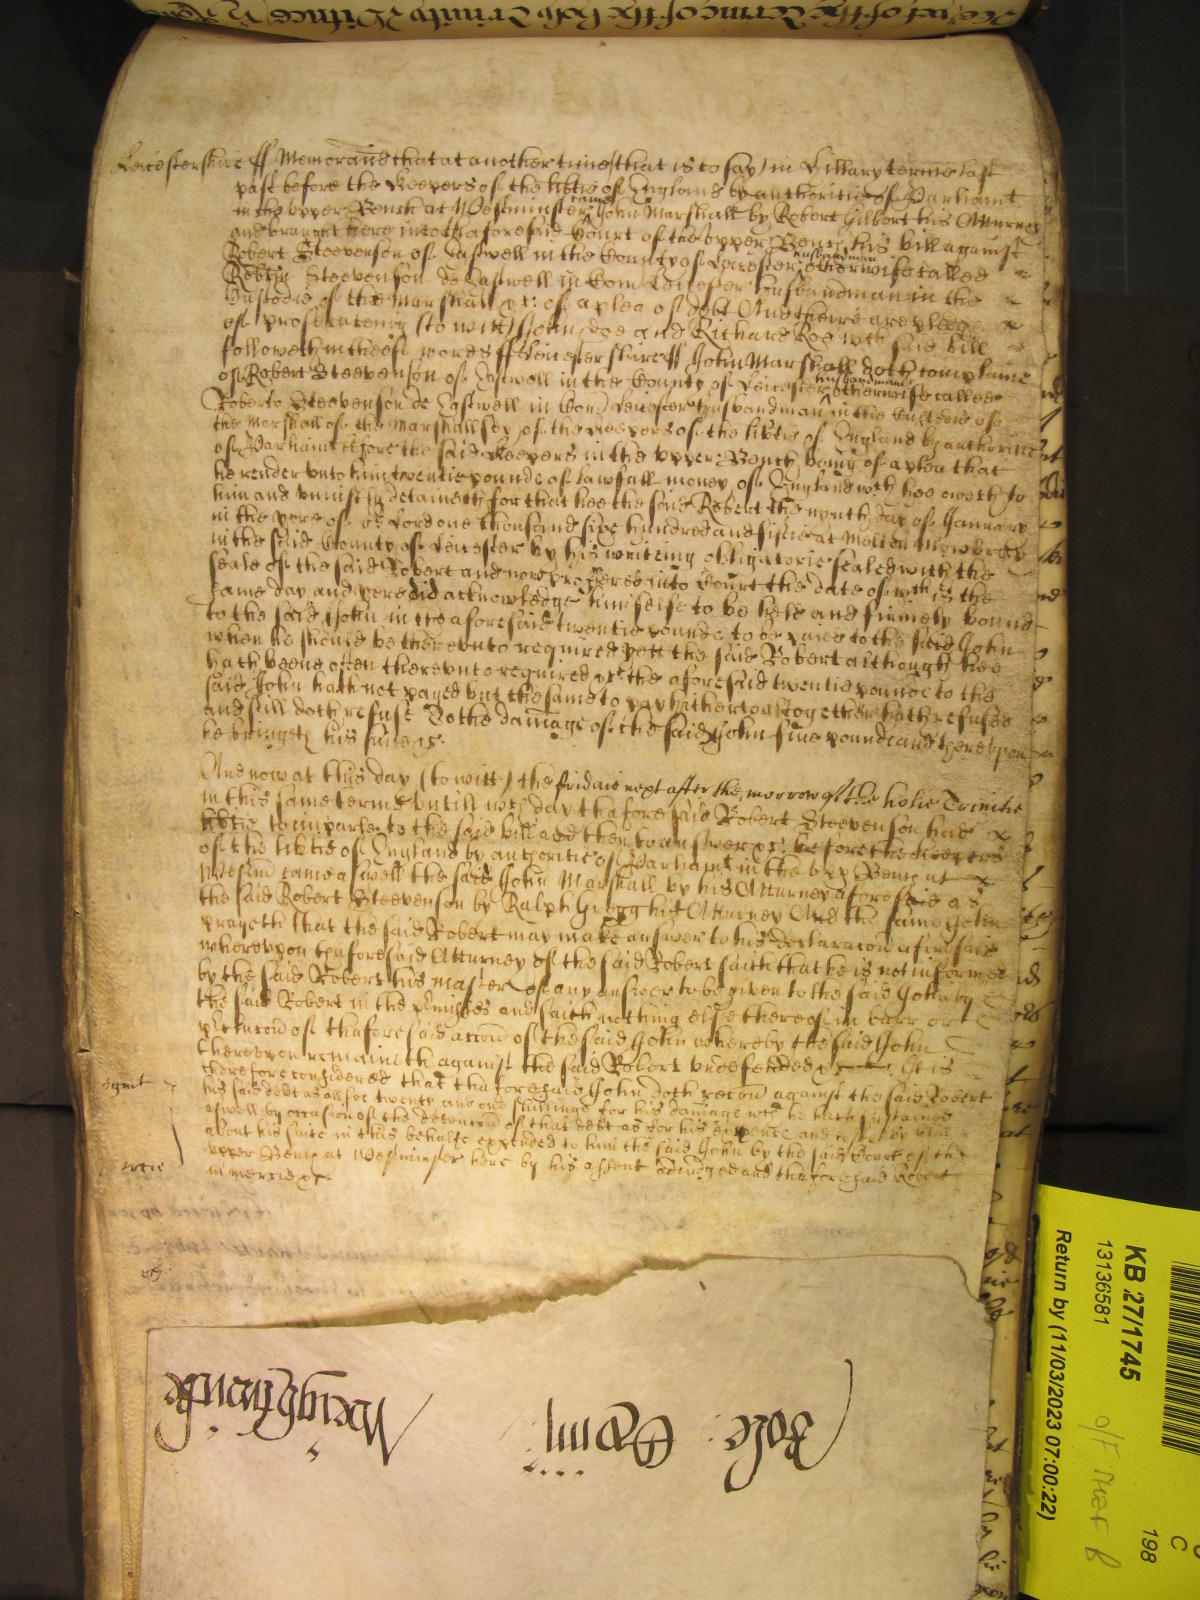 Leicestershire ss Memorand that at another time (that is to say) in Hillary terme last
past before the Keepers of the libtie of England by authoritie of Parliamt
in the upper Bench at Westminster came John Marshall by Robert Gilbert his Atturney
and brought here into thaforesaid Court of the upper Bench his bill against
Robert Steevenson of Eastwell in the County of Leicester husbandman otherwise called
Robtu Steevenson de Eastwell in Com Leicester husbandman in the
Custodie of the Marshall &c of a plea of debt And there are pledge
of prosecuteing (to witt) John Doe and Richard Roe wch said bill
followeth in theise words ss Leicestershire ss John Marshall doth complaine
of Robert Steevenson of Eastwell in the County of Leicester husbandman otherwise called
Roberto Steevenson de Eastwell in Com Leicester husbandman in the Custodie of
the Marshall of the Marshallsey of the Keepers of the libtie of England by authoritie
of Parliamt before the said Keepers in the upper Bench being of a plea that
he render unto him twentie pounds of lawfull money of England wch hee oweth to
him and uniustly detaineth for that hee the said Robert the nynth day of January
in the yere of or Lord one thousand six hundred and fiftie at Melton Mowbrey
in the said County of Leicester by his writeing obligatorie sealed with the
seale of the said Robert and now proffered into Court the date of wch is the
same day and yere did acknowledge himselfe to be held and firmely bound
to the said John in the aforesaid twentie pounds to be payed to the said John
when he should be thereunto required yett the said Robert although hee
hath beene often thereunto required &c the aforesaid twentie pounds to the
said John hath not payed but the same to pay hitherto altogether hath refused
and still doth refuse To the damage of the said John five pounds and thereupon
he bringeth his suite &c.
And now at this day (to witt) the fridaie next after the morrow of the holie Trinitie
in this same terme untill wch day thaforesaid Robert Steevenson had
libtie to imparle to the said bill and then to answer &c before the Keepers
of the libtie of England by authoritie of Parliamt in the upp Bench at
Westm came aswell the said John Marshall by his Atturney aforesaid as
the said Robert Steevenson by Ralph Gregg his Atturney And the same John
prayeth that the said Robert may make answer to his declaracon aforesaid
whereupon thaforesaid Atturney of the said Robert saith that he is not informed
by the said Robert his master of any answer to be given to the said John by
the said Robert in the premisses and saith nothing else thereof in barr or
pclusion of thaforesaid accon of the said John whereby the said John
thereupon remaineth against the said Robert undefended &c It is
therefore considered that thaforesaid John doth recover against the said Robert
his said debt as allsoe twenty and one shillings for his damage wch he hath sustained
aswell by occasion of the detencon of that debt as for his expence and costs by him
about his suite in this behalfe expended to him the said John by the said Court of the
upper Bench at Westminster here by his assent adiudged and thaforesaid Robert
in mercie &c.
KB 27/1745
13136581
Return by (11/03/2023 07:00:22)
198
C